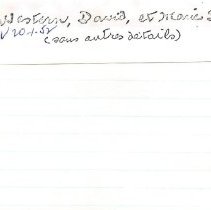 Western, David, et Marie S
V 20-1-52
(sans autres détails)